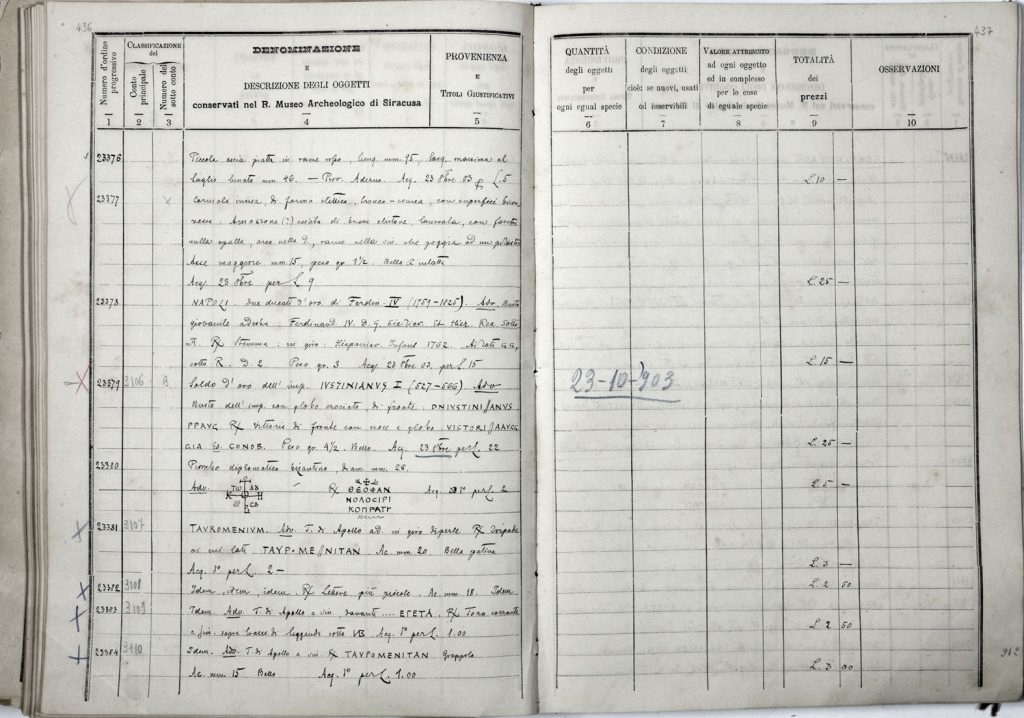 436
Numero d'ordine progressivo
CLASSIFICAZIONE del
Conto principale
Numero del sotto conto
DENOMINAZIONE
E
DESCRIZIONE DEGLI OGGETTI
conservati nel R. Museo Archeologico di Siracusa
PROVENIENZA
E
TITOLI GIUSTIFICATIVI
1 2 3 4 5
23376 Piccola ascia piatta in rame rosso, lung. mm. 95, larg. massima al
taglio lunato mm 46. — Prov. Adernò. Acq. 23 8bre 03 p L. 5
23377 Corniola incisa, di forma elittica, tronco-conica, con superfici
nesse: Amazzone (?) vestita di breve chitone, con
sulla spalla, arco nella d, ramo nella sin. che poggia ad un pilastro
Asse maggiore mm 15, peso gr. 1½. Bella
Acq. 23 8bre per L. 9
23378 NAPOLI. Due ducati d'oro di Ferdin. IV (1759-1825). Adv. Busto
giovanile a destra: Ferdinand. IV. D. G. Siciliar. Et Hier. Rex. Sotto
R. Rx Stemma: in giro: Hispaniar. Infans 1762. Ai lati
sotto R. D. 2. Peso gr. 3 Acq. 23 8bre 03. per L 15
23379 3106 B Soldo d'oro dell' imp. IVSTINIANVS I (527-566). Adv
Busto dell' imp. con globo crociato, di fronte: DNIVSTINI//ANVS
PPAVG Rx Vittoria di fronte con croce e globo VICTORI//AAVGG
GIA Es. CONOB. Peso gr. 4½. Bello. Acq. 23 8bre per L. 22
23380 Piombo diplomatico bizantino, diam. mm. 28.
Adv. Rx ΘΕΟΦΑΝ Acq. per L. 2
ΝΟΛΟCΙΡΙ
ΚΟΠΡΑΤΥ
23381 3107 TAVROMENIVM. Adv. T. di Apollo a D. in giro di perle Rx Tripode
ai cui lati TAYPOME//NITAN Ae. mm. 20. Bella patina
Acq. 1° per L. 2 —
23382 3108 Idem, idem, idem. Rx Lettere più piccole. Ae. mm. 18. Idem
23383 3109 Idem. Adv. T. di Apollo a sin. davanti .... ΕΓΕΤΑ. Rx Toro corrente
a sin. sopra tracce di leggenda sotto VB. Acq. 1° per L. 1.00
23384 3110 Idem. Adv. T. di Apollo a sin Rx TAYPOMENITAN Grappolo
Ae. mm 15 Bello Acq. 1° per L. 1.00
437
QUANTITÀ
degli oggetti
per
ogni egual specie
CONDIZIONE
degli oggetti
cioè: se nuovi, usati
od inservibili
VALORE ATTRIBUTO
ad ogni oggetto
ed in complesso
per le cose
di eguale specie
TOTALITÀ
dei
prezzi
OSSERVAZIONI
6 7 8 9 10
L. 10 —
L. 25 —
L. 15 —
23-10-903
L. 25 —
L. 5 —
L. 3 —
L. 2 50
L. 2 50
L. 3 00